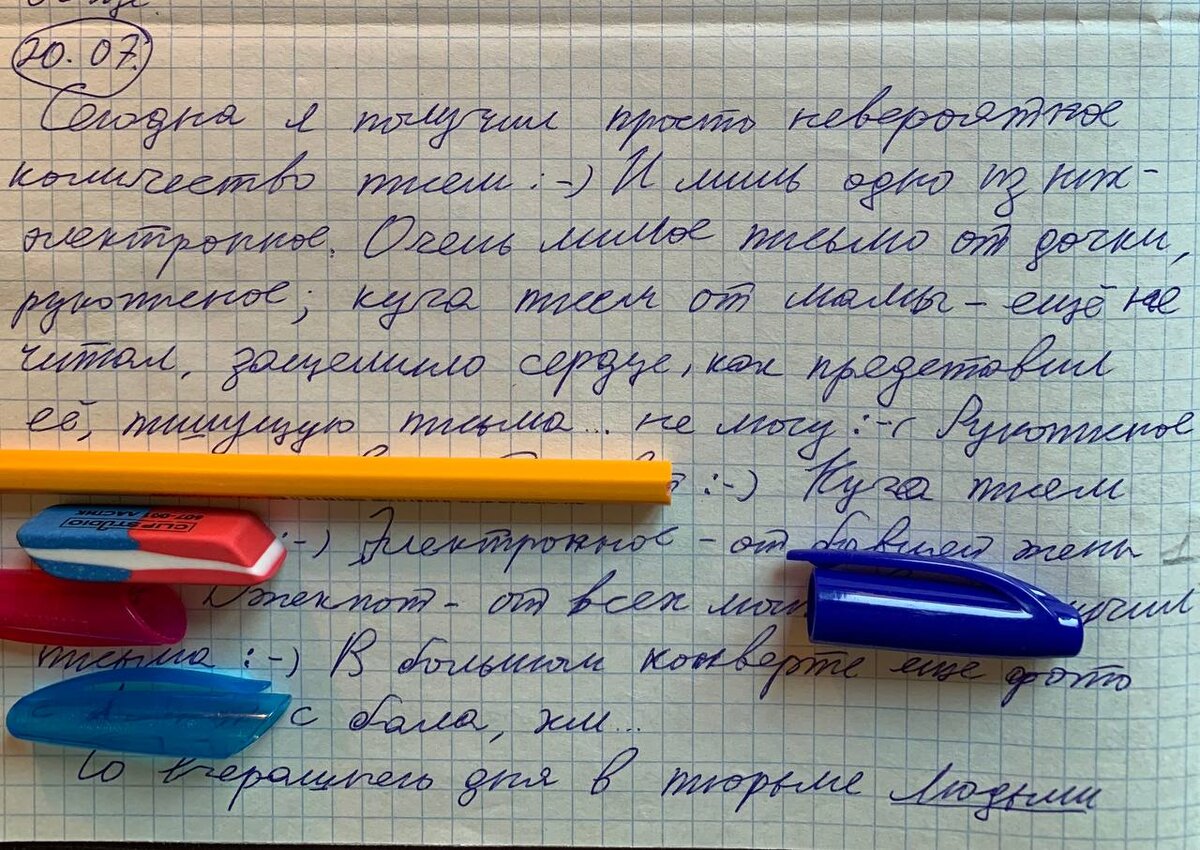 20.07.
Сегодня я получил просто невероятное
количество писем :-) И лишь одно из них-
электронное. Очень милое письмо от дочки,
рукописное; куча писем от мамы - ещё не
читал, защемило сердце, как представил
её, пишущую письма... не могу :-( Рукописное
:-) Куча писем
:-) Электронное - от бывшей жены
CLIP STUDIO
507-00 ЛАСТИК
Джекпот - от всех
письма :-) В большом конверте еще фото
с бала, хм...
Со вчерашнего дня в тюрьме Людьми